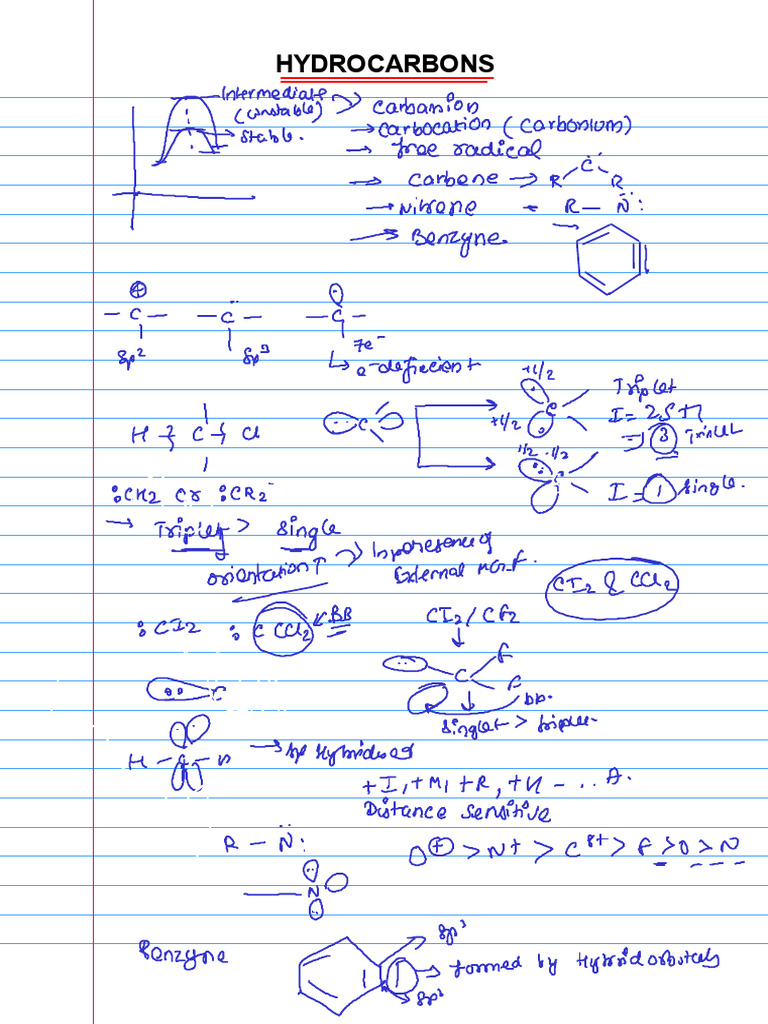 HYDROCARBONS
Intermediate
(unstable)
Stable.
Carbanion
→ Carbocation (Carbonium)
→ free radical
→ Carbene → R C̈ R
→ Nitrene - R — N̈:
→ Benzyne.
⊕
— C — — C̈ — — C —
Sp² Sp³ 7e⁻
↳ e-deficient
+1/2
+1/2
Triplet
I = 2S+1
=> 3 Triplet
1/2 -1/2
I = 1 Single.
H C Cl
C
:CH2 Cr :CR2⁻
→ Triplet > Single
orientation↑
In presence of
External
CI2 & CCl2
:CI2 : C CCl2 BB
CI2 / CF2
C F
F
bb.
C
Singlet >
H — C —
→ Sp Hybridised
+I, +M, +R, +H - ... A.
Distance Sensitive
R — N̈:
O⊕ > N+ > C δ+ > F > O > N
N
Benzyne
Sp³
→ formed by Hybrid orbitals